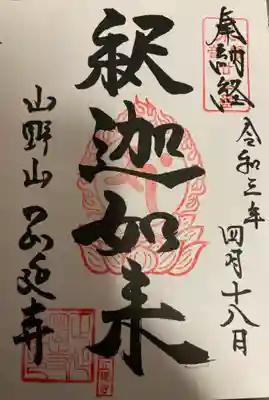 奉納経
令和三年
四月十八日
釈迦如来
山野山